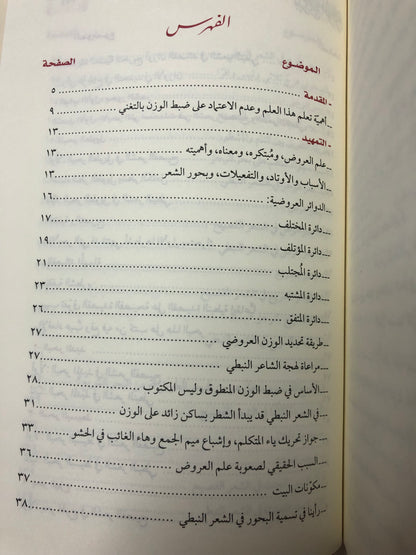 الفهرس
الموضوع الصفحة
- المقدمة ٥
_ أهميّة تعلم هذا العلم وعدم الاعتماد على ضبط الوزن بالتغني ٩
- التمهيد ١٣
_ علم العروض، ومُبتكره، ومعناه، وأهميته ١٣
_ الأسباب والأوتاد، والتفعيلات، وبحور الشعر ١٣
_ الدوائر العروضية: ١٦
_ دائرة المختلف ١٧
_ دائرة المؤتلف ١٩
_ دائرة المُجتلب ٢١
_ دائرة المشتبه ٢٣
_ دائرة المتفق ٢٦
_ طريقة تحديد الوزن العروضي ٢٧
_ مراعاة لهجة الشاعر النبطي ٢٧
_ الأساس في ضبط الوزن المنطوق وليس المكتوب ٢٨
_ في الشعر النبطي قد يبدأ الشطر بساكن زائد على الوزن ٣١
_ جواز تحريك ياء المتكلم، وإشباع ميم الجمع وهاء الغائب في الحشو ٣٣
_ السبب الحقيقي لصعوبة علم العروض ٣٦
_ مكوّنات البيت ٣٧
_ رأينا في تسمية البحور في الشعر النبطي ٣٨